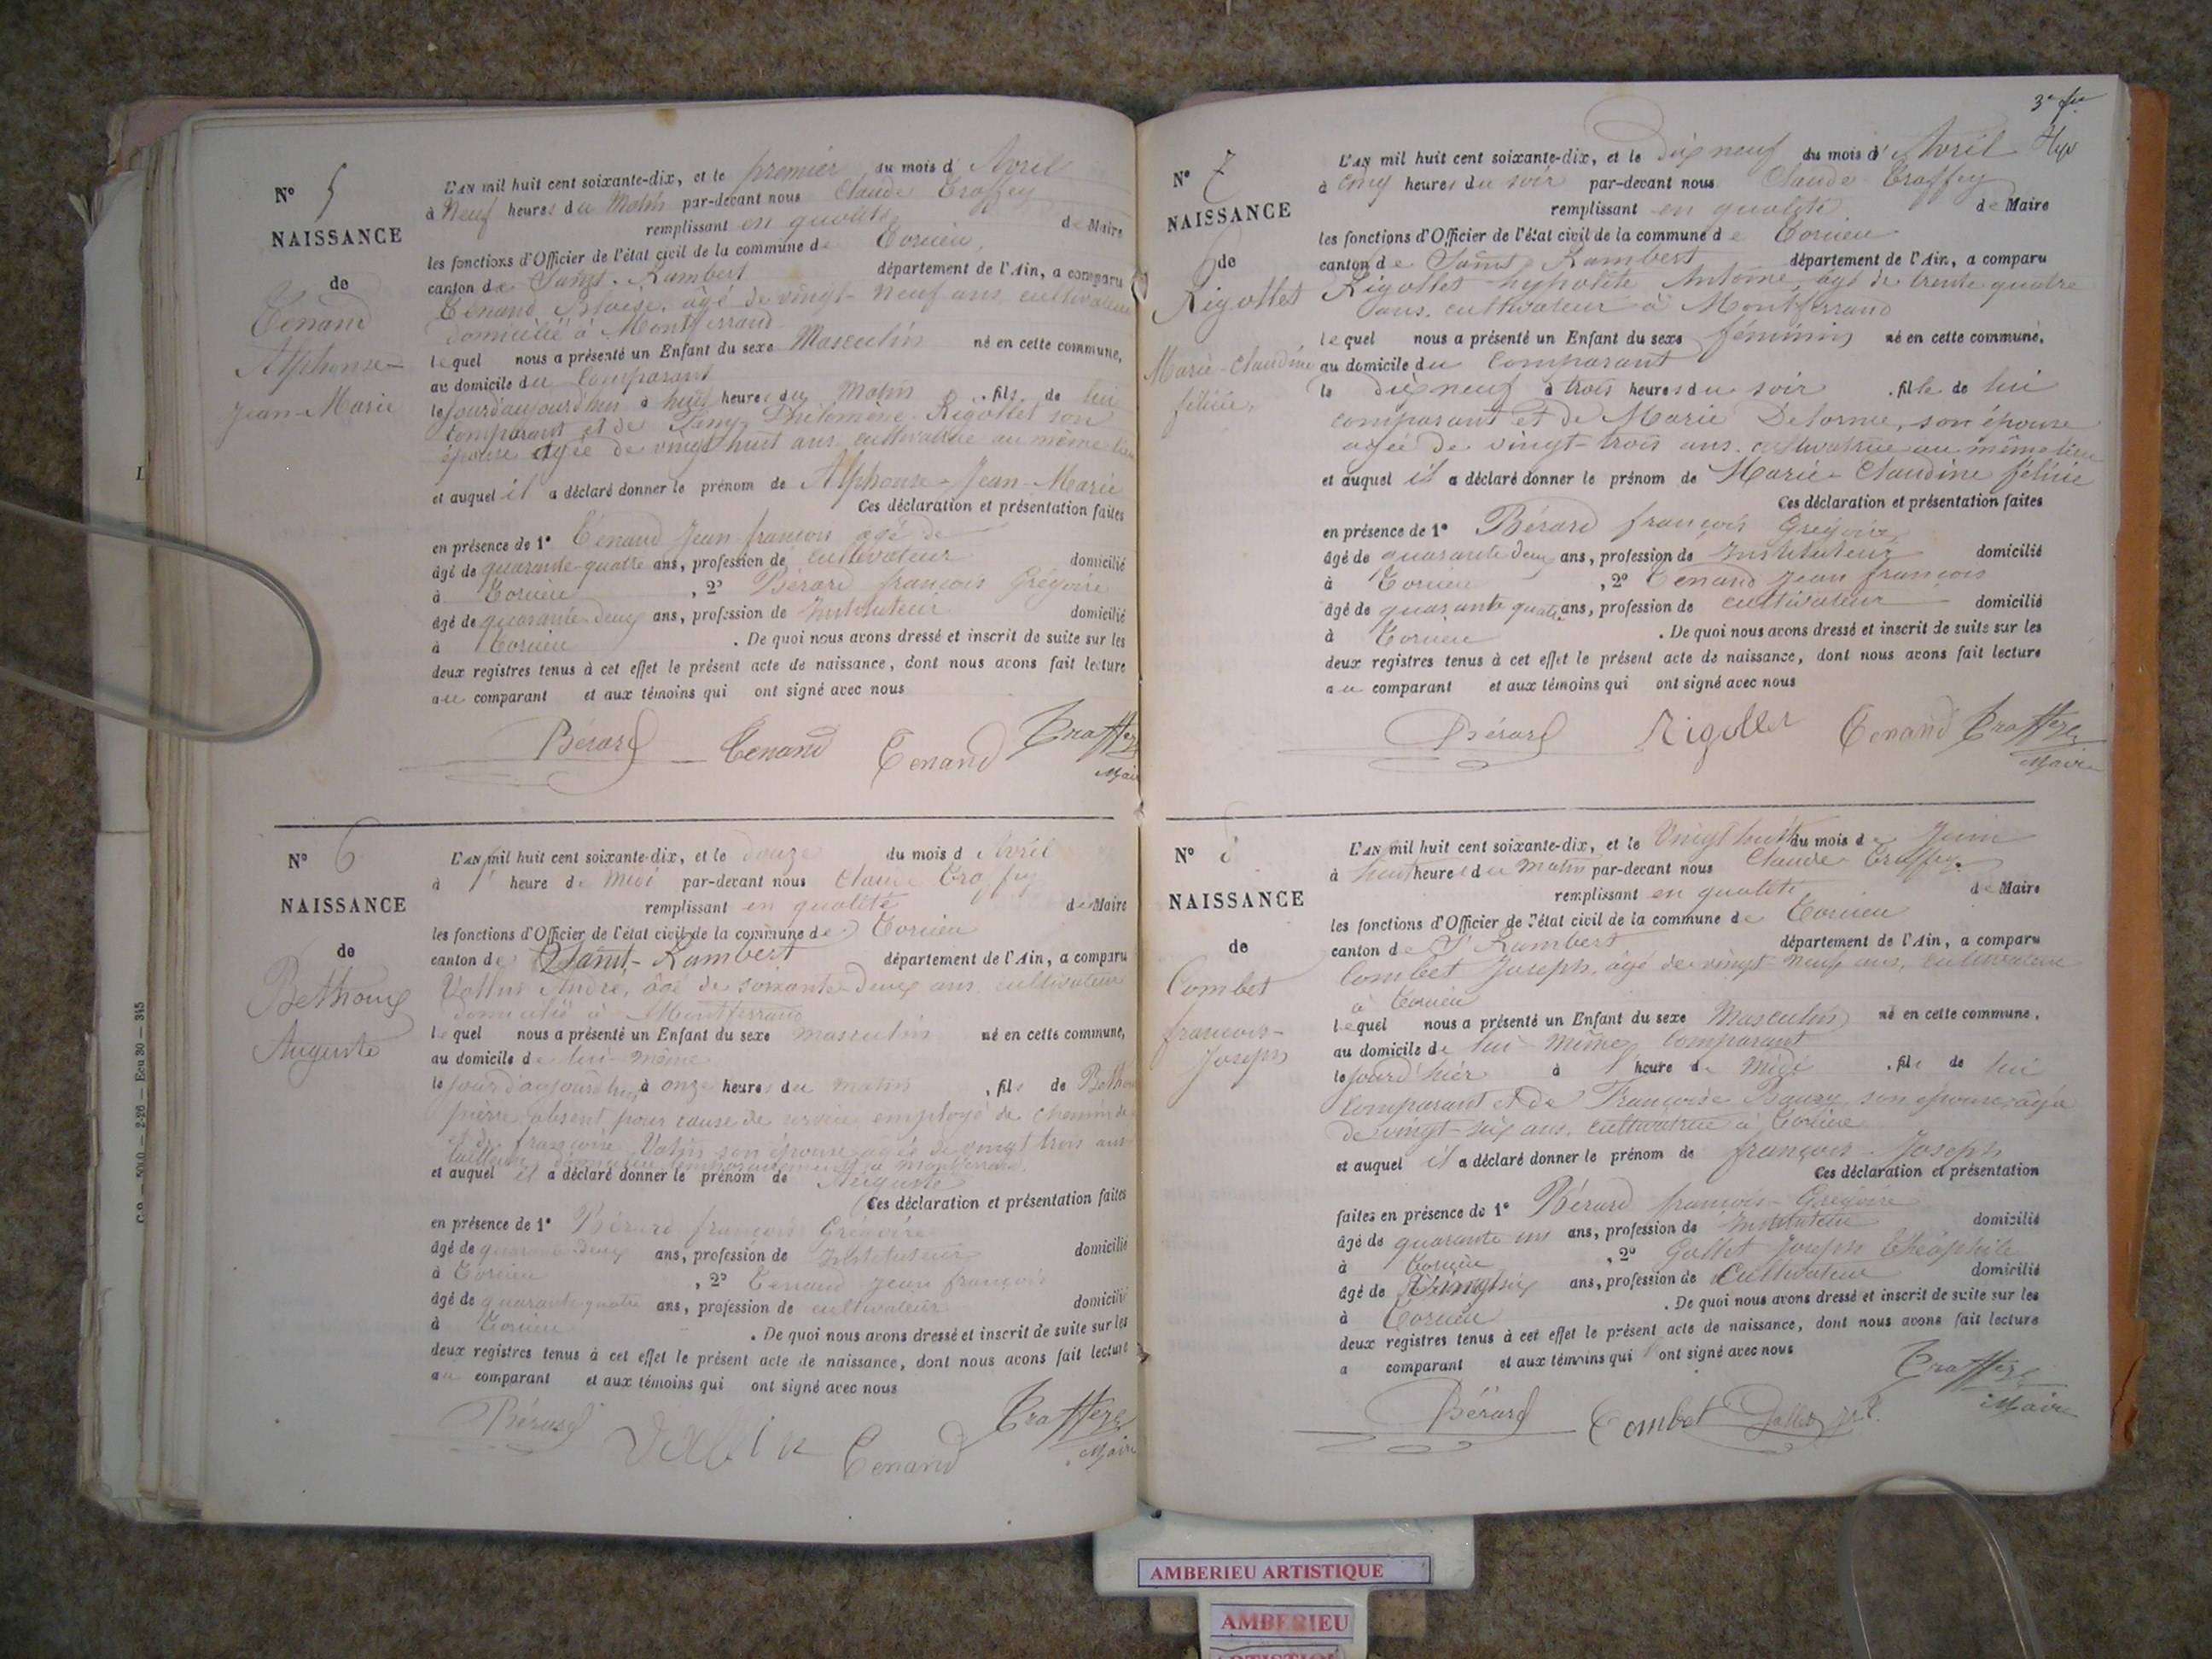 N° 5
NAISSANCE
de
Tenand
Alphonse-
Jean-Marie
L'AN mil huit cent soixante-dix, et le premier du mois d'Avril
à Neuf heures du Matin par-devant nous Claude Traffey
remplissant en qualité de Maire
les fonctions d'Officier de l'état civil de la commune de Torcieu,
canton de Saint-Rambert département de l'Ain, a comparu
Tenand Blaise, âgé de vingt-neuf ans cultivateur
domicilié à Montferrand
lequel nous a présenté un Enfant du sexe Masculin né en cette commune,
au domicile du Comparant
le jourd'aujourd'hui à huit heures du Matin, fils de lui
comparant et de Fany Philomène Rigollet son
épouse agée de vingt huit ans cultivatrice au même lieu
et auquel il a déclaré donner le prénom de Alphonse-Jean-Marie
Ces déclaration et présentation faites
en présence de 1° Tenand Jean-françois agé de
âgé de quarante-quatre ans, profession de cultivateur domicilié
à Torcieu, 2° Bérard françois Grégoire
âgé de quarante-deux ans, profession de Instituteur domicilié
à Torcieu. De quoi nous avons dressé et inscrit de suite sur les
deux registres tenus à cet effet le présent acte de naissance, dont nous avons fait lecture
au comparant et aux témoins qui ont signé avec nous
Bérard Tenand Tenand Traffey
Maire
N° 6
NAISSANCE
de
Bethoux
Auguste
L'AN mil huit cent soixante-dix, et le douze du mois d'Avril
à 1 heure de Midi par-devant nous Claude Traffey
remplissant en qualité de Maire
les fonctions d'Officier de l'état civil de la commune de Torcieu
canton de Saint-Rambert département de l'Ain, a comparu
André, âgé de soixante-deux ans cultivateur
domicilié à Montferrand
lequel nous a présenté un Enfant du sexe masculin né en cette commune,
au domicile de lui-même
le jourd'aujourd'hui à onze heures du matin, fils de
pierre, absent pour cause de service employé de chemin de
et de françoise Vallin son épouse agée de vingt trois ans
temporairement à Montferrand.
et auquel il a déclaré donner le prénom de Auguste
Ces déclaration et présentation faites
en présence de 1° Bérard françois Grégoire
âgé de quarante deux ans, profession de Instituteur domicilié
à Torcieu, 2° Tenand Jean françois
âgé de quarante quatre ans, profession de cultivateur domicilié
à Torcieu. De quoi nous avons dressé et inscrit de suite sur les
deux registres tenus à cet effet le présent acte de naissance, dont nous avons fait lecture
au comparant et aux témoins qui ont signé avec nous
Bérard Tenand Traffey
Maire
C.P. — 5000 — 2-26 — Ecu 30 — 345
N° 7
NAISSANCE
de
Rigollet
Marie-Claudine
félicie,
L'AN mil huit cent soixante-dix, et le dix neuf du mois d'Avril
à cinq heures du soir par-devant nous Claude Traffey
remplissant en qualité de Maire
les fonctions d'Officier de l'état civil de la commune de Torcieu
canton de Saint Rambert département de l'Ain, a comparu
Rigollet hypolite Antoine, agé de trente quatre
ans, cultivateur à Montferrand
lequel nous a présenté un Enfant du sexe féminin né en cette commune,
au domicile du Comparant
le dix neuf à trois heures du soir, fille de lui
comparant et de Marie Delorme, son épouse
agée de vingt-trois ans, cultivatrice au même lieu
et auquel il a déclaré donner le prénom de Marie-Claudine félicie
Ces déclaration et présentation faites
en présence de 1° Bérard françois Grégoire
âgé de quarante deux ans, profession de Instituteur domicilié
à Torcieu, 2° Tenand Jean françois
âgé de quarante quatre ans, profession de cultivateur domicilié
à Torcieu. De quoi nous avons dressé et inscrit de suite sur les
deux registres tenus à cet effet le présent acte de naissance, dont nous avons fait lecture
au comparant et aux témoins qui ont signé avec nous
Bérard Rigollet Tenand Traffey
Maire
N° 8
NAISSANCE
de
Combet
francois-
Joseph
L'AN mil huit cent soixante-dix, et le Vingt huit du mois de Juin
à huit heures du matin par-devant nous Claude Traffey
remplissant en qualité de Maire
les fonctions d'Officier de l'état civil de la commune de Torcieu
canton de St Rambert département de l'Ain, a comparu
Combet Joseph, âgé de vingt-neuf ans, cultivateur
à Torcieu
lequel nous a présenté un Enfant du sexe Masculin né en cette commune,
au domicile de lui-même Comparant
le jourd'hier à 1 heure de Midi, fils de lui
Comparant et de Françoise son épouse, âgée
de vingt-six ans, cultivatrice à Torcieu
et auquel il a déclaré donner le prénom de françois-Joseph
Ces déclaration et présentation
faites en présence de 1° Bérard françois-Grégoire
âgé de quarante ans, profession de Instituteur domicilié
à Torcieu, 2° Gallet Joseph Théophile
âgé de Vingt six ans, profession de Cultivateur domicilié
à Torcieu. De quoi nous avons dressé et inscrit de suite sur les
deux registres tenus à cet effet le présent acte de naissance, dont nous avons fait lecture
a comparant et aux témoins qui ont signé avec nous
Bérard Combet Gallet Traffey
Maire
AMBERIEU ARTISTIQUE
AMBERIEU
ARTISTIQUE